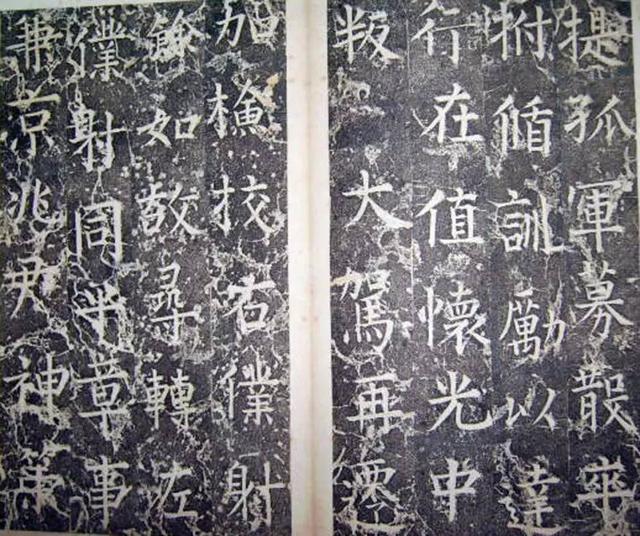 提孤軍募散卒
拊循訓勵以達
行在值懷光中
叛 大駕再遷
加檢挍右僕射
餘如故尋轉左
僕射同平章事
兼京兆尹神策